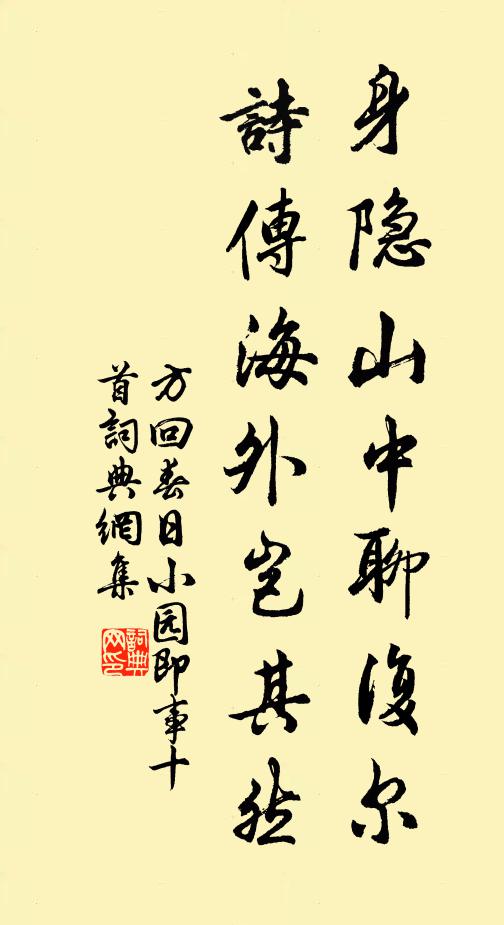 身隐山中聊復尔
詩傳海外岂其然
方回春日小园即事十
首詞典網集
詞典网印